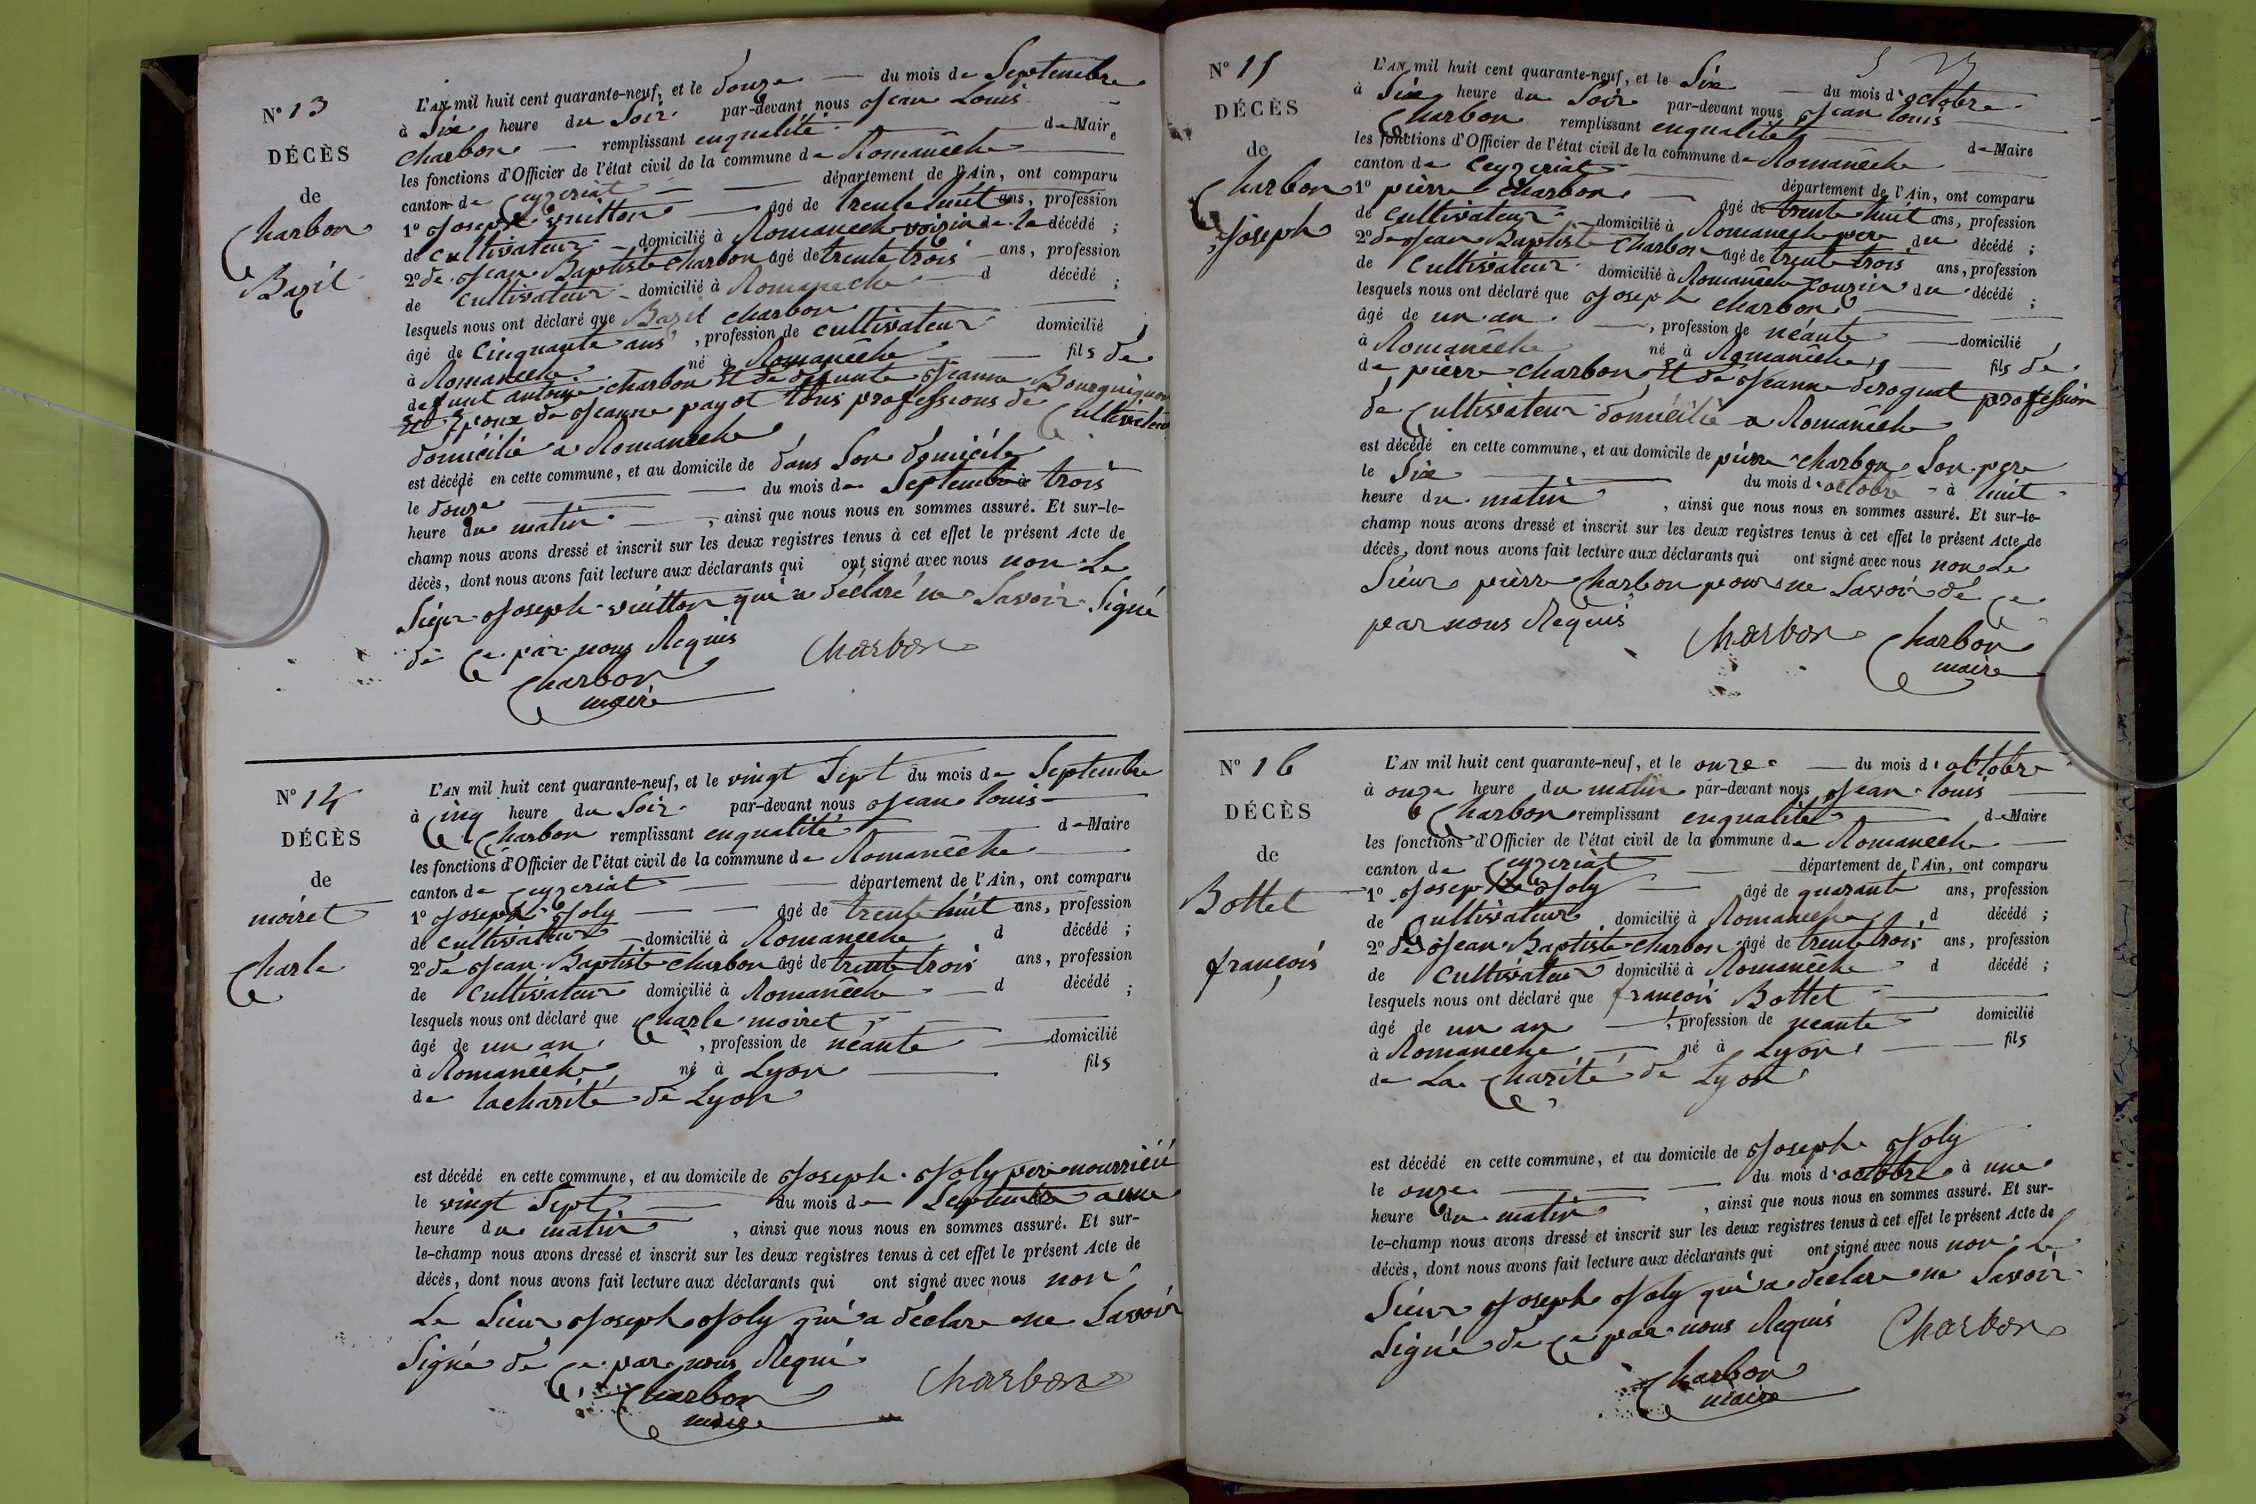 N° 13
DÉCÈS
de
Charbon
Bazil
L'AN mil huit cent quarante-neuf, et le douze du mois de Septembre
à Six heure du Soir par-devant nous Jean Louis
Charbon remplissant enqualité de Maire
les fonctions d'Officier de l'état civil de la commune de Romanêche
canton de Ceyzeriat département de l'Ain, ont comparu
1° Joseph vuitton âgé de trente huit ans, profession
de cultivateur domicilié à Romanech voisin de le décédé ;
2° de Jean Baptiste Charbon âgé de trente trois ans, profession
de cultivateur domicilié à Romaneche d décédé ;
lesquels nous ont déclaré que Bazil Charbon
âgé de Cinquante ans, profession de cultivateur domicilié
à Romaneche né à Romanêche fils de
defunt antoine Charbon et de defunte Jeanne Bourguignon
et Epoux de Jeanne payot tous professions de Cultivateur
domicilié a Romanêche
est décédé en cette commune, et au domicile de dans Son domicile
le douze du mois de Septembre à trois
heure du matin, ainsi que nous nous en sommes assuré. Et sur-le-
champ nous avons dressé et inscrit sur les deux registres tenus à cet effet le présent Acte de
décès, dont nous avons fait lecture aux déclarants qui ont signé avec nous non Le
Sieur Joseph vuitton qui a déclaré ne Savoir Signé
de Ce par nous Requis
Charbon
Charbon
maire
N° 14
DÉCÈS
de
moiret
Charle
L'AN mil huit cent quarante-neuf, et le vingt Sept du mois de Septembre
à Cinq heure du Soir par-devant nous Jean louis
Charbon remplissant enqualité de Maire
les fonctions d'Officier de l'état civil de la commune de Romanêche
canton de Ceyzeriat département de l'Ain, ont comparu
1° Joseph Joly âgé de trente huit ans, profession
de cultivateur domicilié à Romanêche d décédé ;
2° de Jean Baptiste Charbon âgé de trente trois ans, profession
de Cultivateur domicilié à Romanêche d décédé ;
lesquels nous ont déclaré que Charle moiret
âgé de un an, profession de néante domicilié
à Romanêche né à Lyon fils
de lacharité de Lyon
est décédé en cette commune, et au domicile de Joseph Joly pere nourriéié
le vingt Sept du mois de Septembre a une
heure du matin, ainsi que nous nous en sommes assuré. Et sur-
le-champ nous avons dressé et inscrit sur les deux registres tenus à cet effet le présent Acte de
décès, dont nous avons fait lecture aux déclarants qui ont signé avec nous non
Le Sieur Joseph Joly qui a déclare ne Savoir
Signé de Ce par nous Requi
Charbon
Charbon
maire
5 23
N° 15
DÉCÈS
de
Charbon
Joseph
L'AN mil huit cent quarante-neuf, et le Six du mois d'octobre
à Six heure du Soir par-devant nous Jean louis
Charbon remplissant enqualité de Maire
les fonctions d'Officier de l'état civil de la commune de Romanêche
canton de Ceyzeriat département de l'Ain, ont comparu
1° pierre Charbon âgé de trente huit ans, profession
de Cultivateur domicilié à Romanech pere du décédé ;
2° de Jean Baptiste Charbon âgé de trente trois ans, profession
de Cultivateur domicilié à Romanêch Couzin du décédé ;
lesquels nous ont déclaré que Joseph Charbon
âgé de un an, profession de néante domicilié
à Romanêche né à Romanêche fils de
de pierre Charbon et de Jeanne deroquat profession
de Cultivateur domicilié a Romanêche
est décédé en cette commune, et au domicile de pierre Charbon Son pere
le Six du mois d'octobre à huit
heure du matin, ainsi que nous nous en sommes assuré. Et sur-le-
champ nous avons dressé et inscrit sur les deux registres tenus à cet effet le présent Acte de
décès, dont nous avons fait lecture aux déclarants qui ont signé avec nous non Le
Sieur pierre Charbon pour ne Savoir de Ce
par nous Requis
Charbon Charbon
maire
N° 16
DÉCÈS
de
Bottet
françois
L'AN mil huit cent quarante-neuf, et le onze du mois d'octobre
à onze heure du matin par-devant nous Jean louis
Charbon remplissant enqualité de Maire
les fonctions d'Officier de l'état civil de la commune de Romanêche
canton de Ceyzeriat département de l'Ain, ont comparu
1° Joseph Joly âgé de quarante ans, profession
de Cultivateur domicilié à Romanêche d décédé ;
2° de Jean Baptiste Charbon âgé de trente trois ans, profession
de Cultivateur domicilié à Romanêche d décédé ;
lesquels nous ont déclaré que françois Bottet
âgé de un an, profession de néante domicilié
à Romanêche né à Lyon fils
de La Charité de Lyon
est décédé en cette commune, et au domicile de Joseph Joly
le onze du mois d'octobre à une
heure du matin, ainsi que nous nous en sommes assuré. Et sur-
le-champ nous avons dressé et inscrit sur les deux registres tenus à cet effet le présent Acte de
décès, dont nous avons fait lecture aux déclarants qui ont signé avec nous non Le
Sieur Joseph Joly qui a déclare ne Savoir
Signé de Ce par nous Requis
Charbon
Charbon
maire